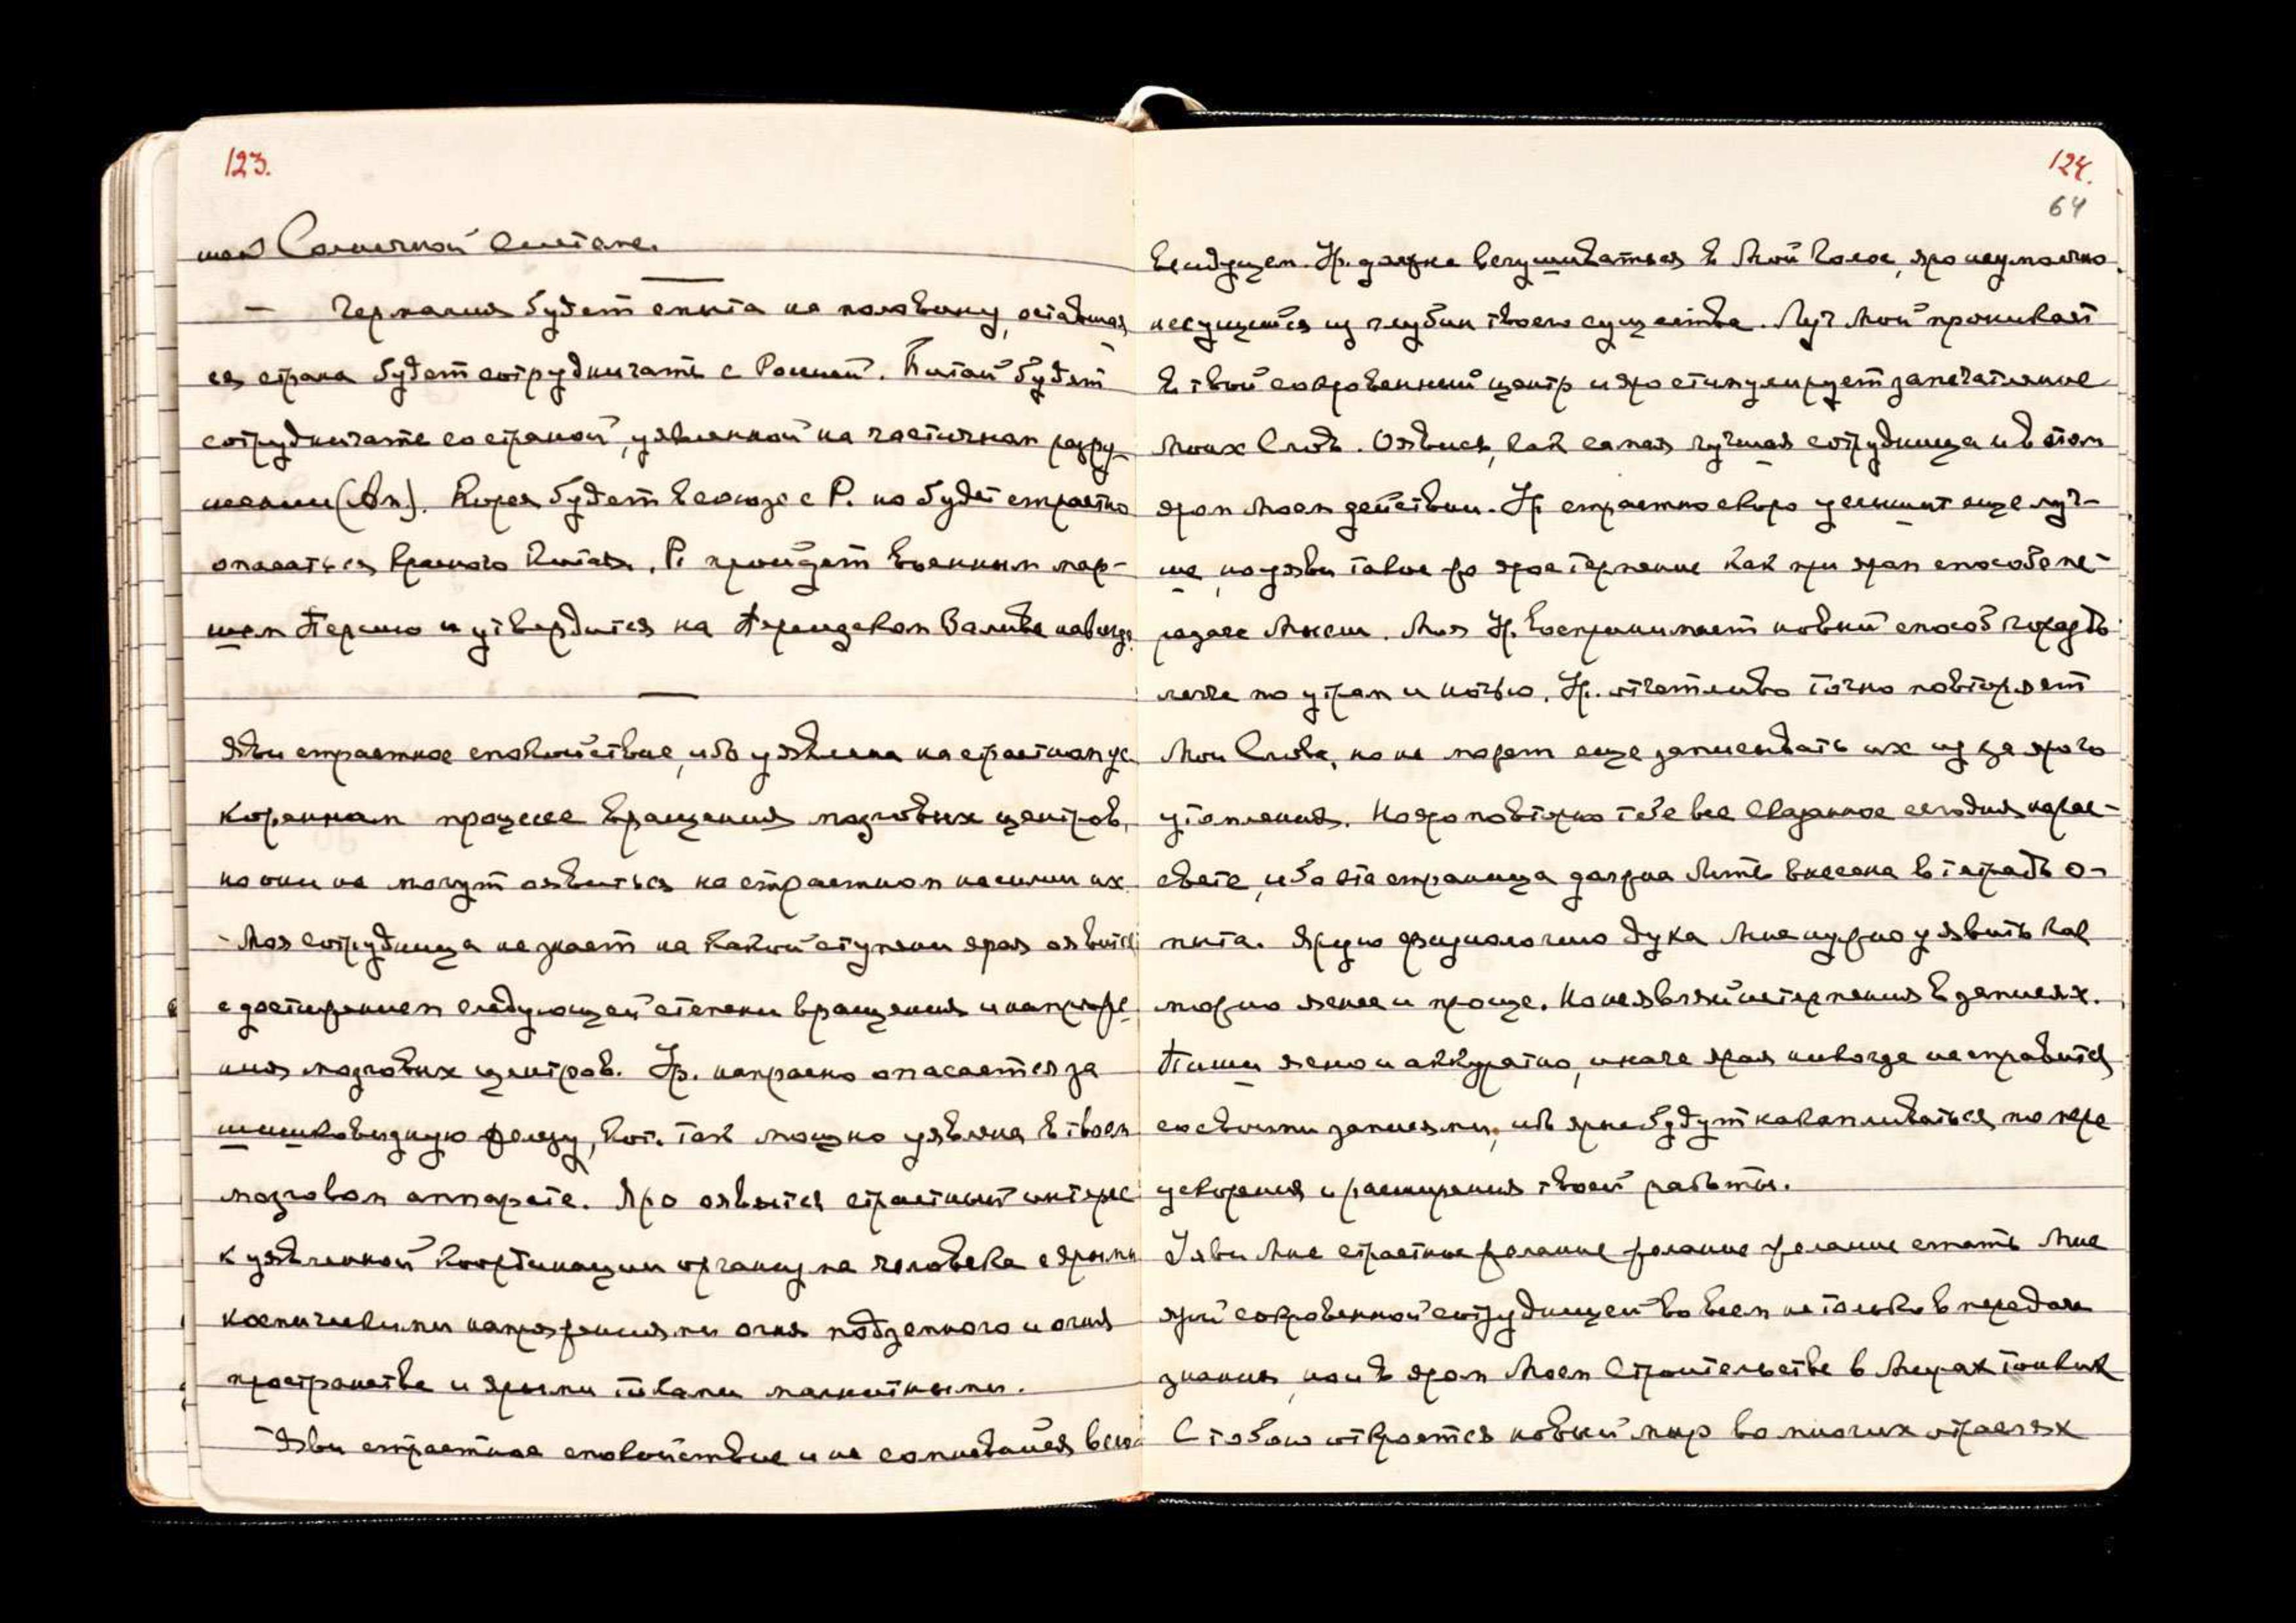 123.
шей Солнечной Системе.
— Германия будет смыта на половину, оставшая
ся страна будет сотрудничать с Россией. Китай будет
сотрудничать со страной, уявленной на частичном разру
шении (Яп.). Корея будет в союзе с Р. но будет страстно
опасаться Красного Китая. Р. пройдет военным мар-
шем Персию и утвердится на Персидском Заливе навсегда.
Яви страстное спокойствие, ибо уявлена на страстном ус
коренном процессе вращения мозговых центров,
но они не могут оявиться на страстном насилии их
– Моя сотрудница не знает на какой ступени ярая оявится
с достижением следующей степени вращения и напряже
ния мозговых центров. Ур. напрасно опасается за
шишковидную железу, кот. так мощно уявлена в твоем
мозговом аппарате. Яро оявится страстный интерес
к уявленной координации организма человека с ярыми
космическими напряжениями огня подземного и огня
пространства и ярыми токами магнитными.
Яви страстное спокойствие и не сомневайся
124.
64
Ур. должна вслушиваться в Мой Голос, яро неумолчно
несущийся из глубин твоего существа. Луч Мой проникает
в твой сокровенный центр и яро стимулирует запечатление
Моих Слов. Оявись, как самая лучшая сотрудница и в этом
яром Моем действии. Ур. страстно скоро услышит еще луч-
ше, но уяви такое же ярое терпение как при яром способе пе-
редаче Мысли. Моя Ур. воспринимает новый способ гораздо
легче по утрам и ночью. Ур. отчетливо точно повторяет
Мои Слова, но не может еще записывать их из за ярого
утомления. Но яро повторю тебе все сказанное сегодня на рас-
свете, ибо эта страница должна быть внесена в тетрадь о-
пыта. Ярую физиологию духа Мне нужно уявить как
можно яснее и проще. Но не являй нетерпения в записях.
Пиши ясно и аккуратно, иначе ярая никогда не справится
со своими записями, ибо ярые будут накапливаться по мере
ускорения и расширения твоей работы.
Уяви Мне страстное желание желание желание стать Мне
ярой сокровенной сотрудницей во всем не только в передаче
знания, но и в яром Моем Строительстве в Мирах тонких
С тобою откроется новый мир во многих отраслях